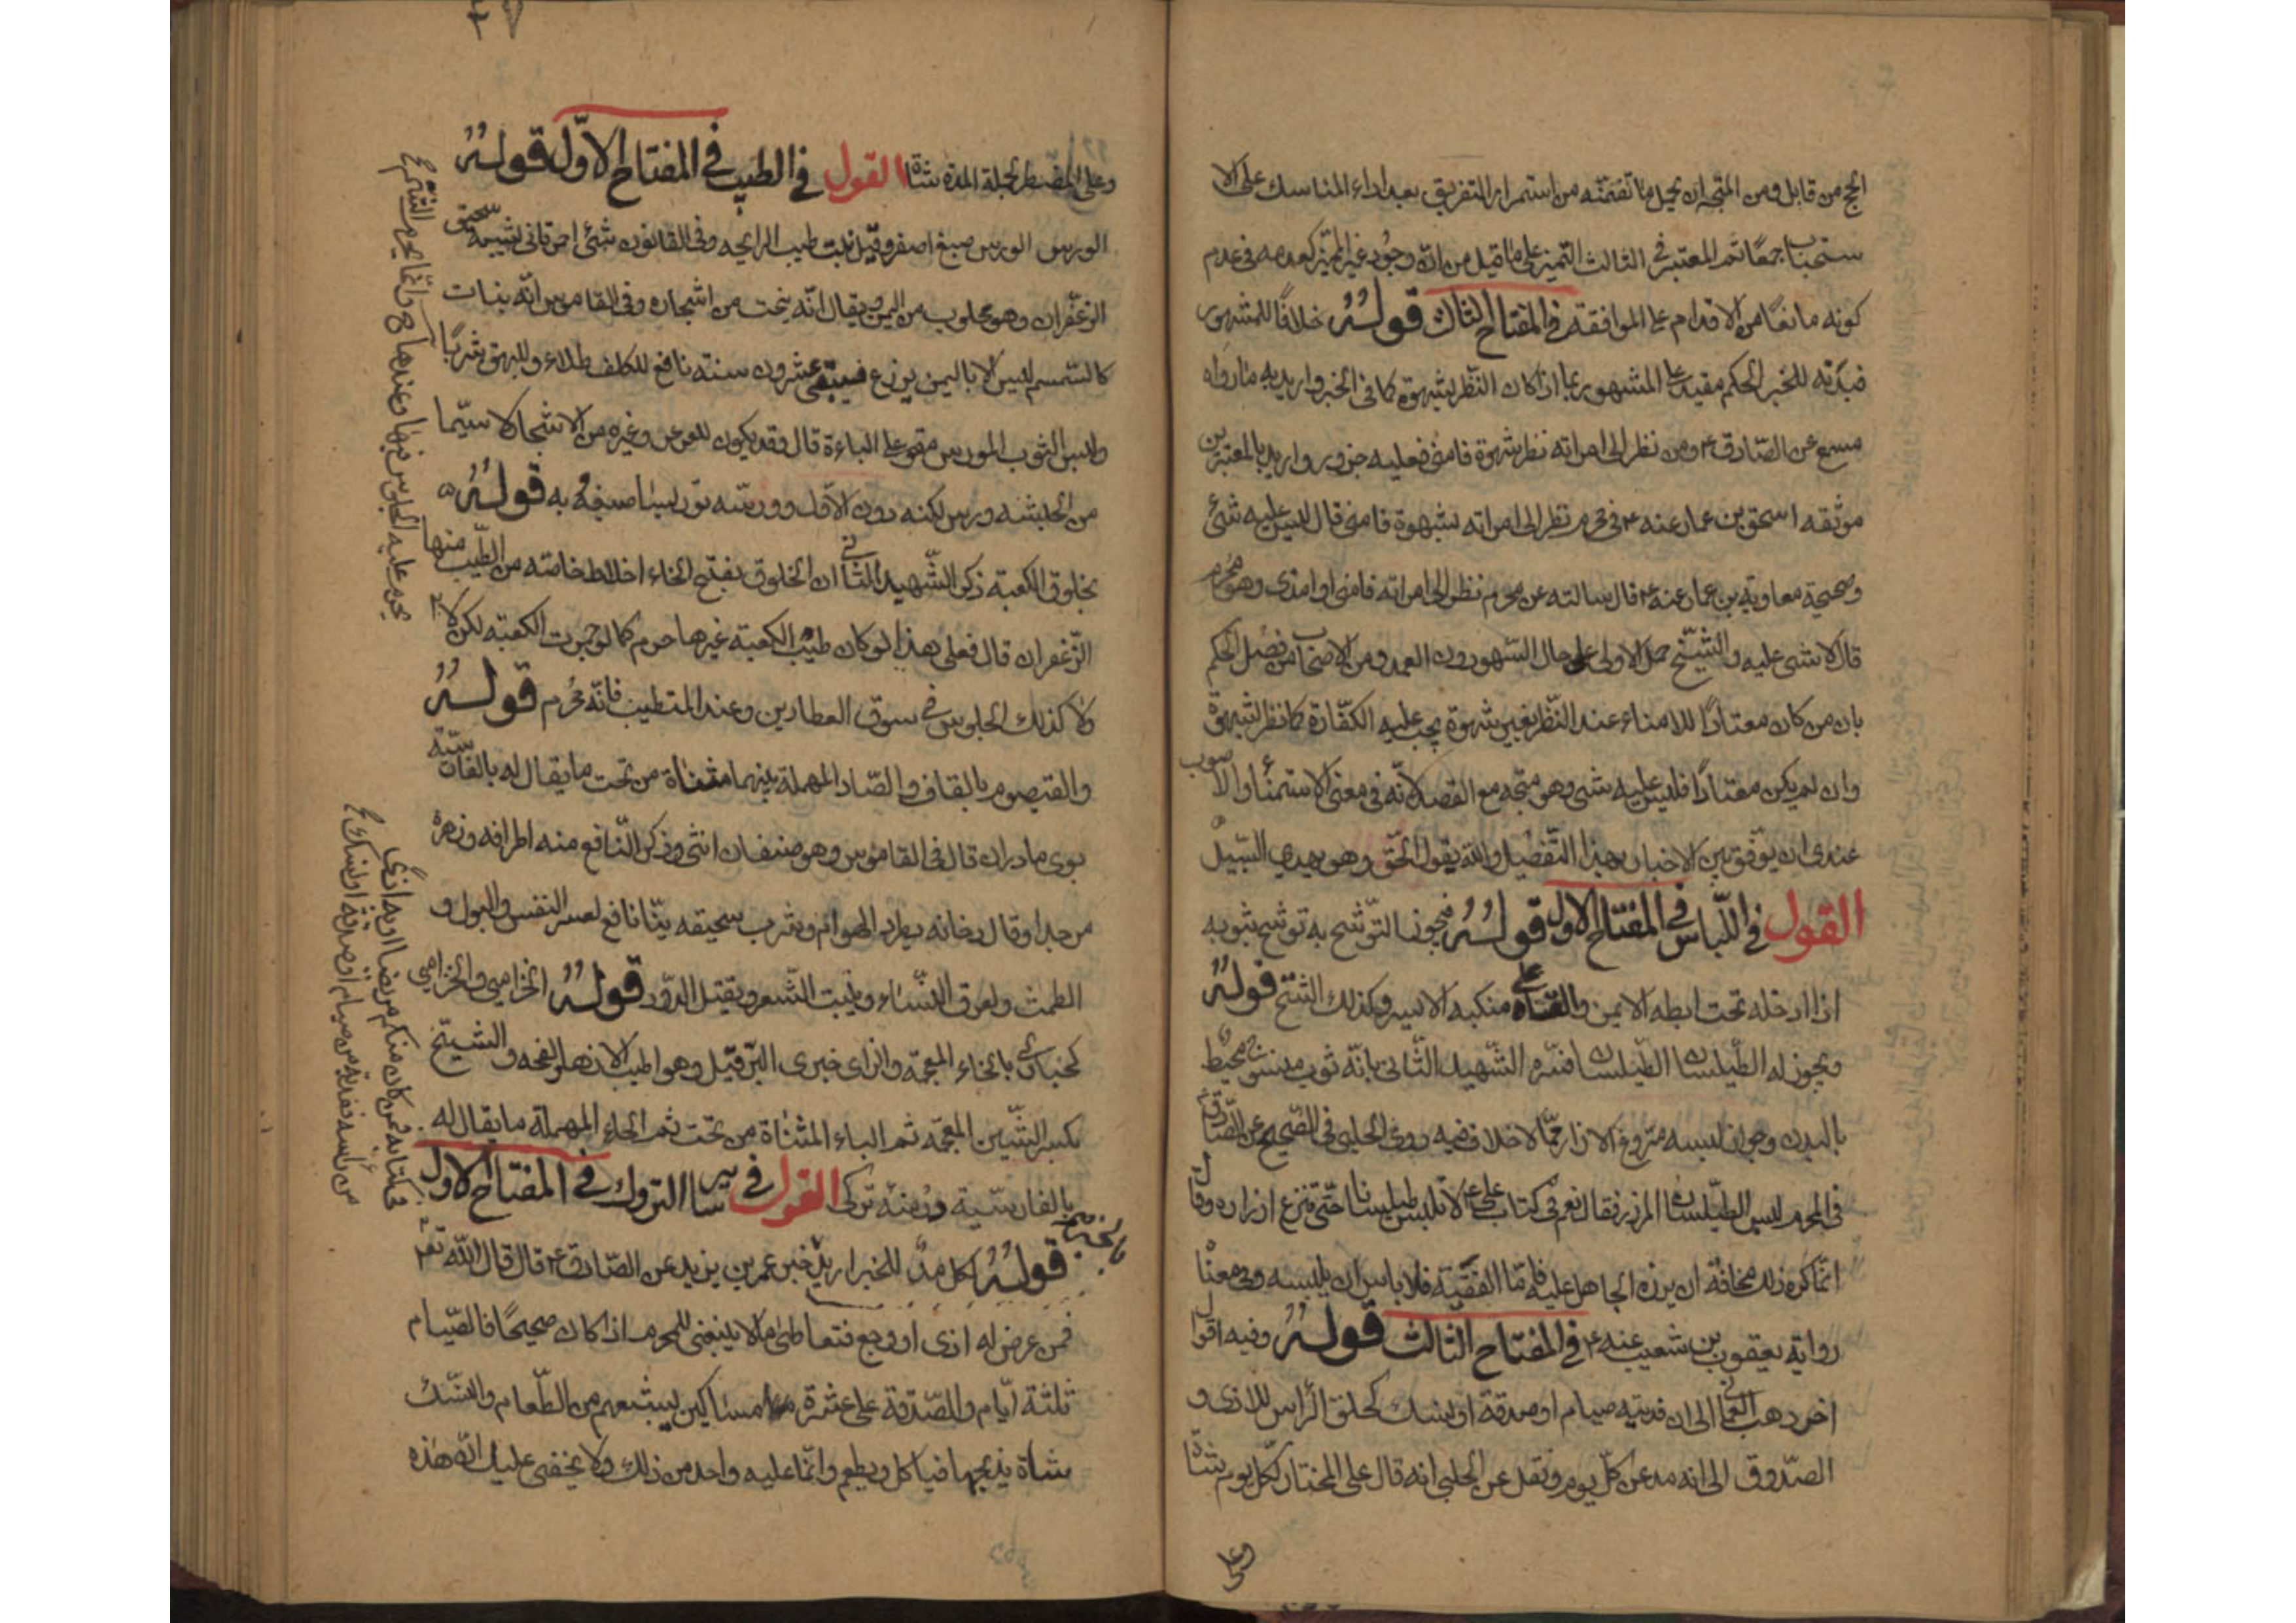 الحج من قابل ومن المتجه ان يحمل ما تضمنته من استمرار التفريق بعد اداء المناسك على الا
ستحباب جمعًا ثم المعتبر في الثالث التميز على ما قيل من ان وجود غير المميز كعدمه في عدم
كونه مانعًا من الاقدام على الموافقه في المفتاح الثالث قوله خلافًا للمشهور
فيدته للخبر الحكم مقيد على المشهور بما اذا كان النظر بشهوة كما في الخبر واريد به ما رواه
مسمع عن الصادق ع ومن نظر الى امراته نظر شهوة فامنى فعليه جزور واريد بالمعتبرين
موثقه اسحق بن عمار عنه ع في محرم نظر الى امراته بشهوة فامنى قال ليس عليه شئ
وصحيحة معاوية بن عمار عنه ع قال سالته عن محرم نظر الى امراته فامنى او امذى وهو محرم
قال لا شى عليه والشيخ حمل الاولى على حال السهو دون العمد ومن الاصحاب من فصل الحكم
بان من كان معتادًا للامناء عند النظر بغير شهوة يجب عليه الكفارة كالنظر لشهوة
وان لم يكن معتادًا فليس عليه شى وهو متجه مع القصد لانه في معنى الاستمناء والاصوب
عندى ان يوفق بين الاخبار بهذا التفصيل والله يقول الحق وهو يهدي السبيل
القول في اللباس في المفتاح الاول قوله فيجوز التوشح به توشح بثوبه
اذا ادخله تحت ابطه الايمن والقاه على منكبه الايسر وكذلك التشح قوله
ويجوز له الطيلسان الطيلسان فسره الشهيد الثانى بانه ثوب منسوج محيط
بالبدن وجواز لبسه منزوع الازار مما لا خلاف فيه روى الحلبى في الصحيح عن الصادق ع
في المحرم يلبس الطيلسان المزرر فقال نعم في كتاب على ع لا تلبس طيلسانا حتى تنزع ازراره وقال
انما كره ذلك مخافة ان يزره الجاهل عليه فاما الفقيه فلا باس ان يلبسه وفى معناه
رواية يعقوب بن شعيب عنه ع في المفتاح الثالث قوله وفيه اقوال
اخر ذهب العماني الى ان فديته صيام او صدقة او نسك كحلق الراس للاذى و
الصدوق الى انه مد عن كل يوم ونقل عن الحلبي انه قال على المختار لكل يوم شاة
وعلى
وعلى المضطر لجملة المدة شاة القول في الطيب في المفتاح الاول قوله
الورس الورس صبغ اصفر وقيل نبت طيب الرايحه وفى القانون شئ احمر قانى يشبه سحيق
الزعفران وهو مجلوب من اليمن ويقال انه ينحت من اشجاره وفى القاموس انه نبات
كالسمسم ليس الا باليمن يزرع فيبقى عشرون سنة نافع للكلف طلاء وللبهق شربًا
ولبس الثوب المورس مقو على الباءة قال وقد يكون للعرعر وغيره من الاشجار لا سيما
من الحبشه ورس لكنه دون الاول وورسه توريسا صبغه به قوله
بخلوق الكعبة ذكر الشهيد الثانى ان الخلوق بفتح الخاء اخلاط خاصة من الطيب منها
الزعفران قال فعلى هذا لو كان طيب الكعبة غيرها حرم كما لو جمرت الكعبة لكن لا
ولا كذلك الجلوس في سوق العطارين وعند المتطيب فانه محرم قوله
والقيصوم بالقاف والصاد المهملة بينهما مثناة من تحت ما يقال له بالفارسية
بوى مادران قال في القاموس وهو صنفان انثى وذكر النافع منه اطرافه وزهره
مر جدا وقال دخانه يطرد الهوام وشرب سحيقه نيّا نافع لعسر النفس والبول و
الطمث ولعرق النساء وينبت الشعر ويقتل الدود قوله الخزامى والخزامى
كحبارى بالخاء المعجمة والزاى خيرى البر قيل وهو اطيب الازهار نفحه والشيح
بكسر الشين المعجمه ثم الياء المثناة من تحت ثم الحاء المهملة ما يقال له
بالفارسية درمنه تركى القول في ساير التروك في المفتاح الاول
قوله اكل مد للخبر اريد خبر عمر بن يزيد عن الصادق ع قال قال الله تعالى
فمن عرض له اذى او وجع فتعاطى ما لا ينبغى للمحرم اذا كان صحيحًا فالصيام
ثلثة ايام والصدقة على عشرة مساكين يشبعهم من الطعام والنسك
شاة يذبحها فياكل ويطعم وانما عليه واحد من ذلك ولا يخفى عليك ان هذه
في كتابه فمن كان منكم مريضا او به اذى
من راسه ففدية من صيام او صدقة او نسك